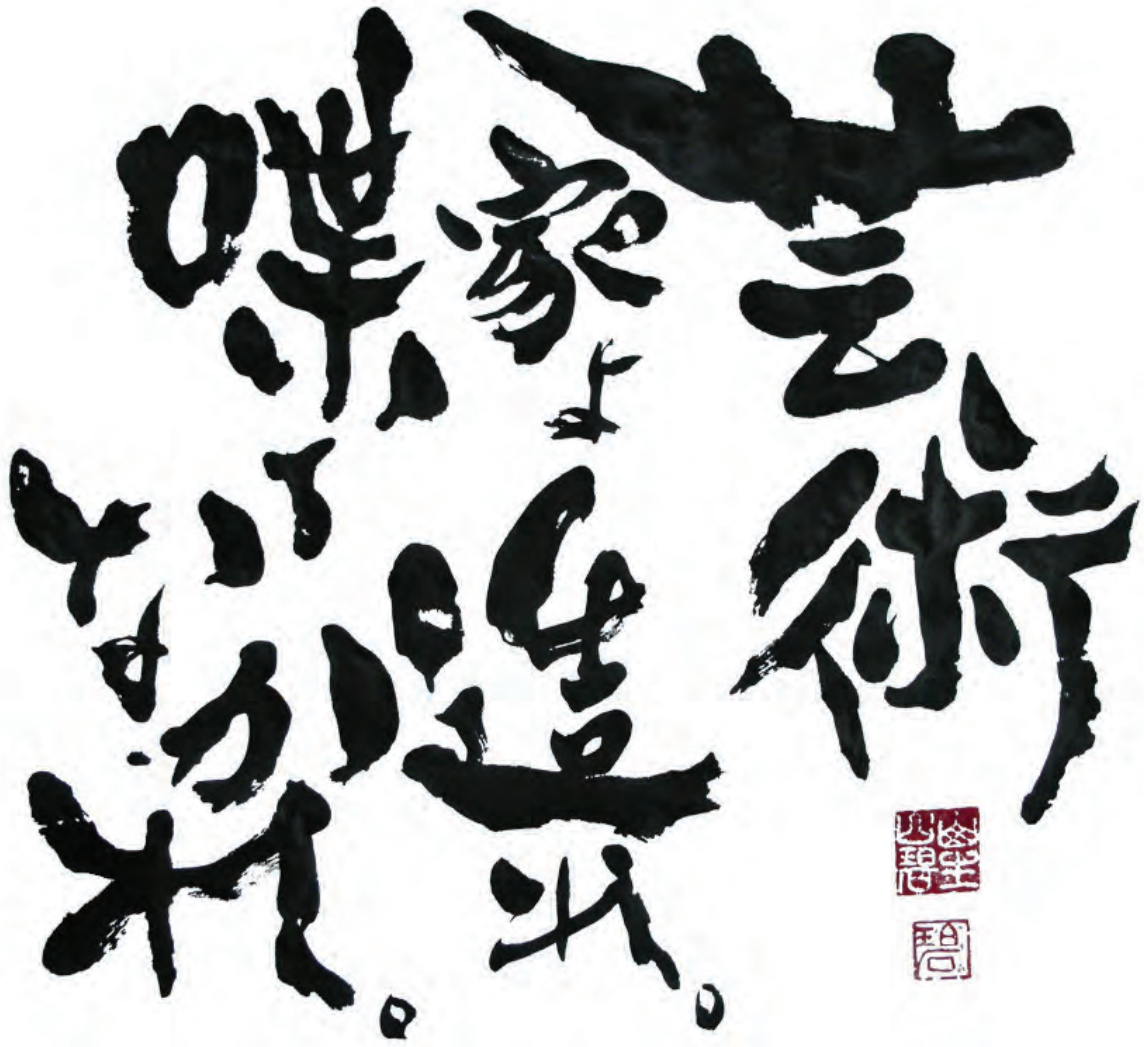 芸術
家よ造れ。
喋るなかれ。
碧